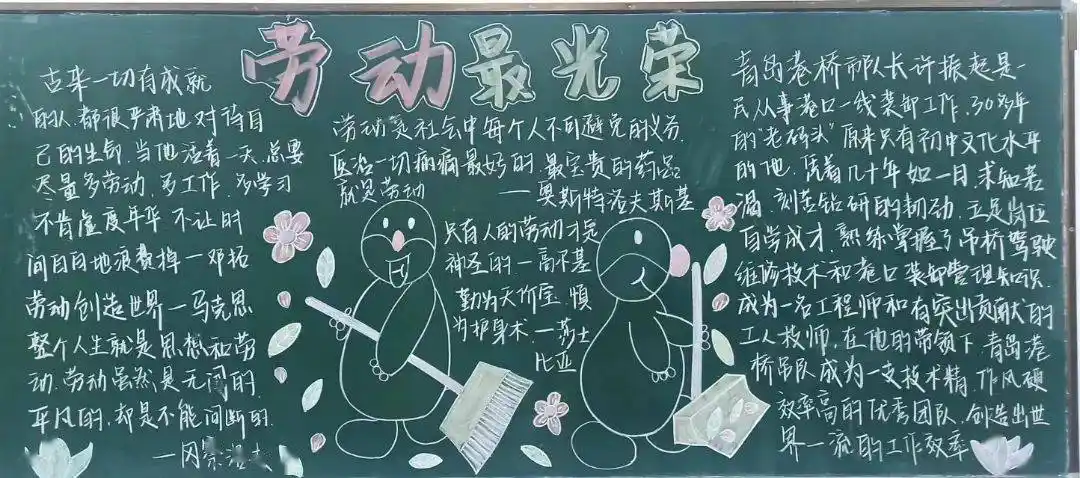 劳动最光荣
古来一切有成就
的人,都很严肃地对待自
己的生命,当他活着一天,总要
尽量多劳动,多工作,多学习
不肯虚度年华,不让时
间白白地浪费掉—邓拓
劳动创造世界—马克思
整个人生就是思想和劳
动,劳动虽然是无闻的,
平凡的,却是不能间断的.
—冈察
劳动是社会中每个人不可避免的义务
医治一切病痛最好的,最宝贵的药品,
就是劳动
——奥斯特洛夫斯基
只有人的劳动才是
神圣的—高尔基
勤为无价宝,慎
为护身术.—莎士
比亚
青岛港桥吊队长许振超是一
民从事港口一线装卸工作,30多年
的"老码头"原来只有初中文化水平
的他,凭着几十年如一日,求知若
渴,刻苦钻研的韧劲,立足岗位
自学成才,熟练掌握了吊桥驾驶
维修技术和港口装卸管理知识,
成为一名工程师和有突出贡献的
工人技师,在他的带领下,青岛港
桥吊队成为一支技术精,作风硬
效率高的优秀团队,创造出世
界一流的工作效率